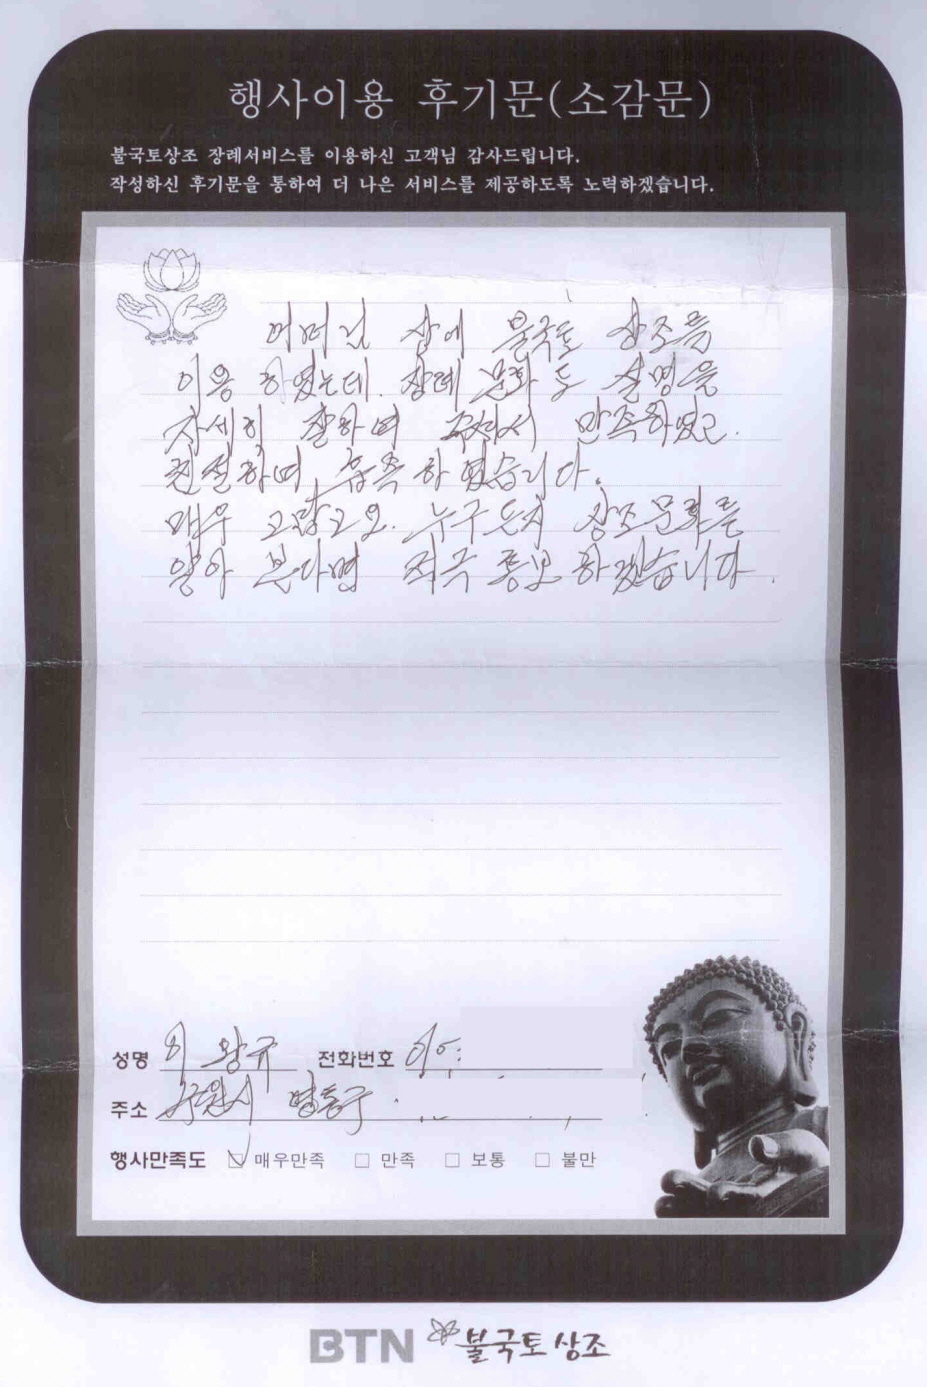 행사이용 후기문(소감문)
불국토상조 장례서비스를 이용하신 고객님 감사드립니다.
작성하신 후기문을 통하여 더 나은 서비스를 제공하도록 노력하겠습니다.
어머님 상에 불국토 상조를
이용 하였는데. 장례 문화도 설명을
자세히 잘하며 주셔서 만족하였고.
친절하며 흡족하였습니다.
매우 고맙고요. 누구든지 상조문화를
알아 본다면 적극 홍보 하겠습니다.
성명 이왕규 전화번호 010.
주소 수원시 영통구
행사만족도 매우만족 만족 보통 불만
BTN 불국토 상조